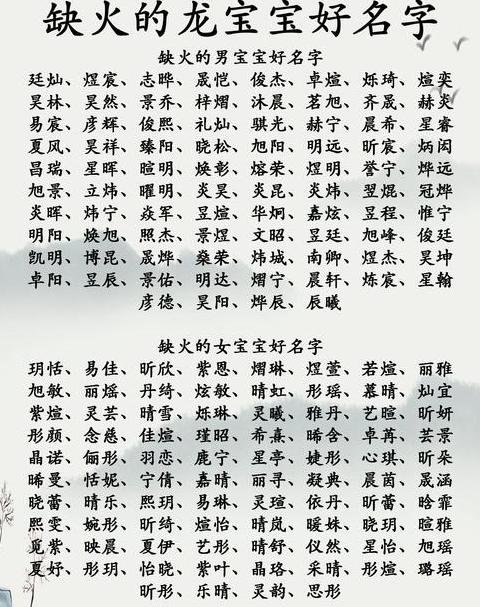 缺火的龙宝宝好名字
缺火的男宝宝好名字
廷灿、煜宸、志晔、晟恺、俊杰、卓煊、烁琦、煊奕
昊林、昊然、景乔、梓熠、沐晨、茗旭、齐晟、赫炎
易宸、彦辉、俊熙、礼灿、骐光、赫宁、晨希、星睿
夏风、昊祥、臻阳、晓松、旭阳、明远、昕宸、炳闳
昌瑞、星晖、暄明、焕彰、熔荣、煜明、誉宁、烨远
旭景、立炜、曜明、炎昊、炎昆、炎炜、翌焜、冠烨
炎晖、炜宁、焱军、昱煊、华炯、嘉炫、昱程、惟宁
明阳、焕旭、照杰、景煜、文昭、昱廷、旭峰、俊廷
凯明、博昆、晟烨、燊荣、炜城、南卿、煜杰、昊坤
卓阳、昱辰、景佑、明达、熠宁、晨轩、炼宸、星翰
彦德、昊阳、烨辰、辰曦
缺火的女宝宝好名字
玥恬、易佳、昕欣、紫恩、熠琳、煜萱、若煊、丽雅
旭敏、丽熠、丹绮、炫敏、晴虹、彤瑶、慕晴、灿宜
紫煊、灵芸、晴雪、烁琳、灵曦、雅丹、艺暄、昕妍
彤颜、念慈、佳煊、瑾昭、希熹、晞含、卓苒、芸景
晶诺、俪彤、羽恋、鹿宁、星亭、婕彤、心琪、昕朵
晞曼、恬妮、宁倩、嘉晴、丽寻、凝典、晨茵、晟涵
晓蕾、晴乐、熙玥、易琳、灵瑄、依丹、昕蕾、晗霏
熙雯、婉彤、昕绮、煊怡、晴岚、暖姝、晓玥、暄雅
觅紫、映晨、夏伊、艺彤、晴舒、仪然、星怡、旭瑶
夏妤、彤玥、怡晓、紫叶、晶珞、采晴、彤煊、璐瑶
昕彤、乐晴、灵韵、思彤